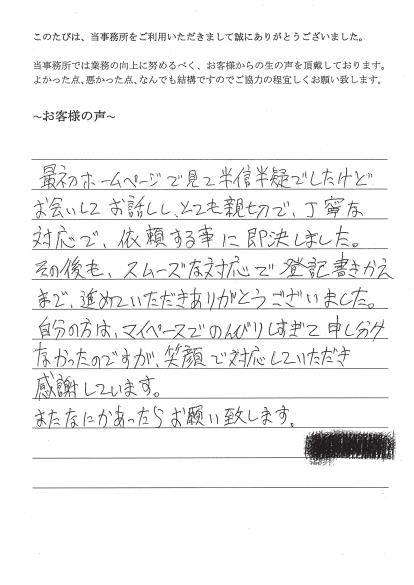 このたびは、当事務所をご利用いただきまして誠にありがとうございました。
当事務所では業務の向上に努めるべく、お客様からの生の声を頂戴しております。
よかった点、悪かった点、なんでも結構ですのでご協力の程宜しくお願い致します。
~お客様の声~
最初ホームページで見て半信半疑でしたけど
お会いしてお話しし、とても親切で、丁寧な
対応で、依頼する事に即決しました。
その後も、スムーズな対応で登記書きかえ
まで、進めていただきありがとうございました。
自分の方は、マイペースでのんびりしすぎて申し分け
なかったのですが、笑顔で対応していただき
感謝しています。
またなにかあったらお願い致します。